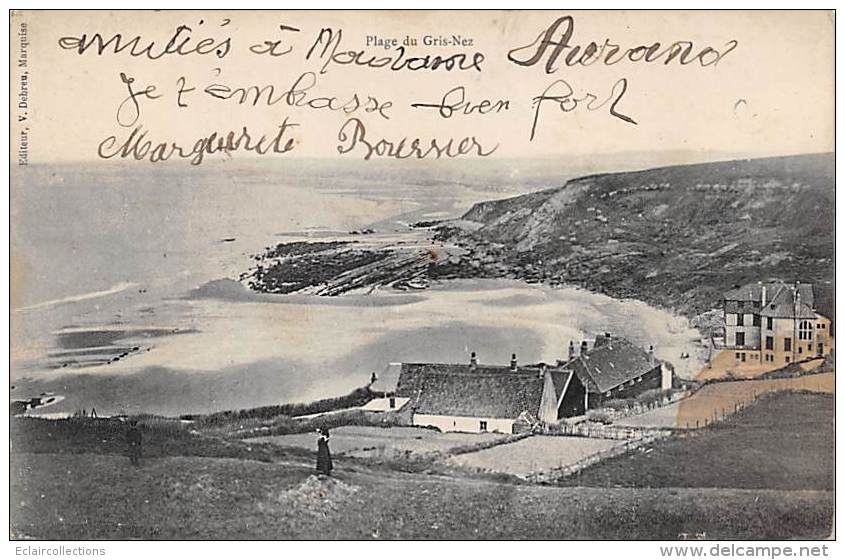 Plage du Gris-Nez
amitiés à Madame Aurand
Je t'embrasse bien fort
Marguerite Boursier
Editeur, V. Debreu, Marquise
Eclaircollections
www.delcampe.net